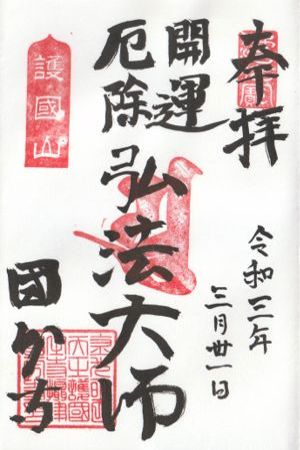 奉拝
令和三年
三月卅一日
開運
厄除
弘法大師
護國山
國分寺